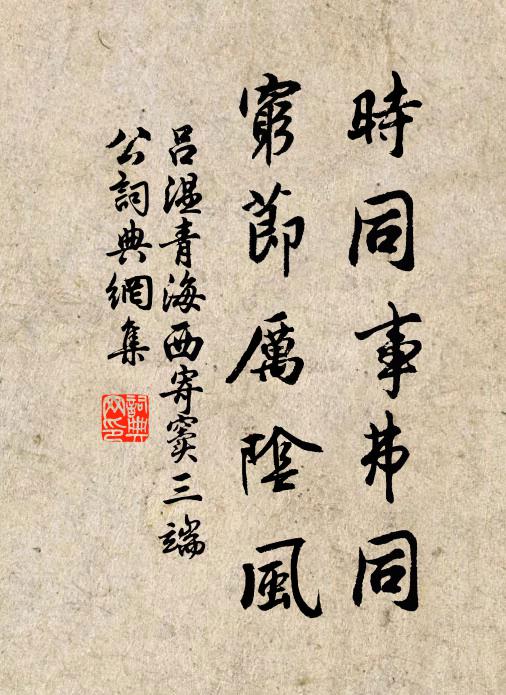 時同事弗同
窮節厲陰風
呂溫青海西寄竇三端
公詞典網集
詞典網印